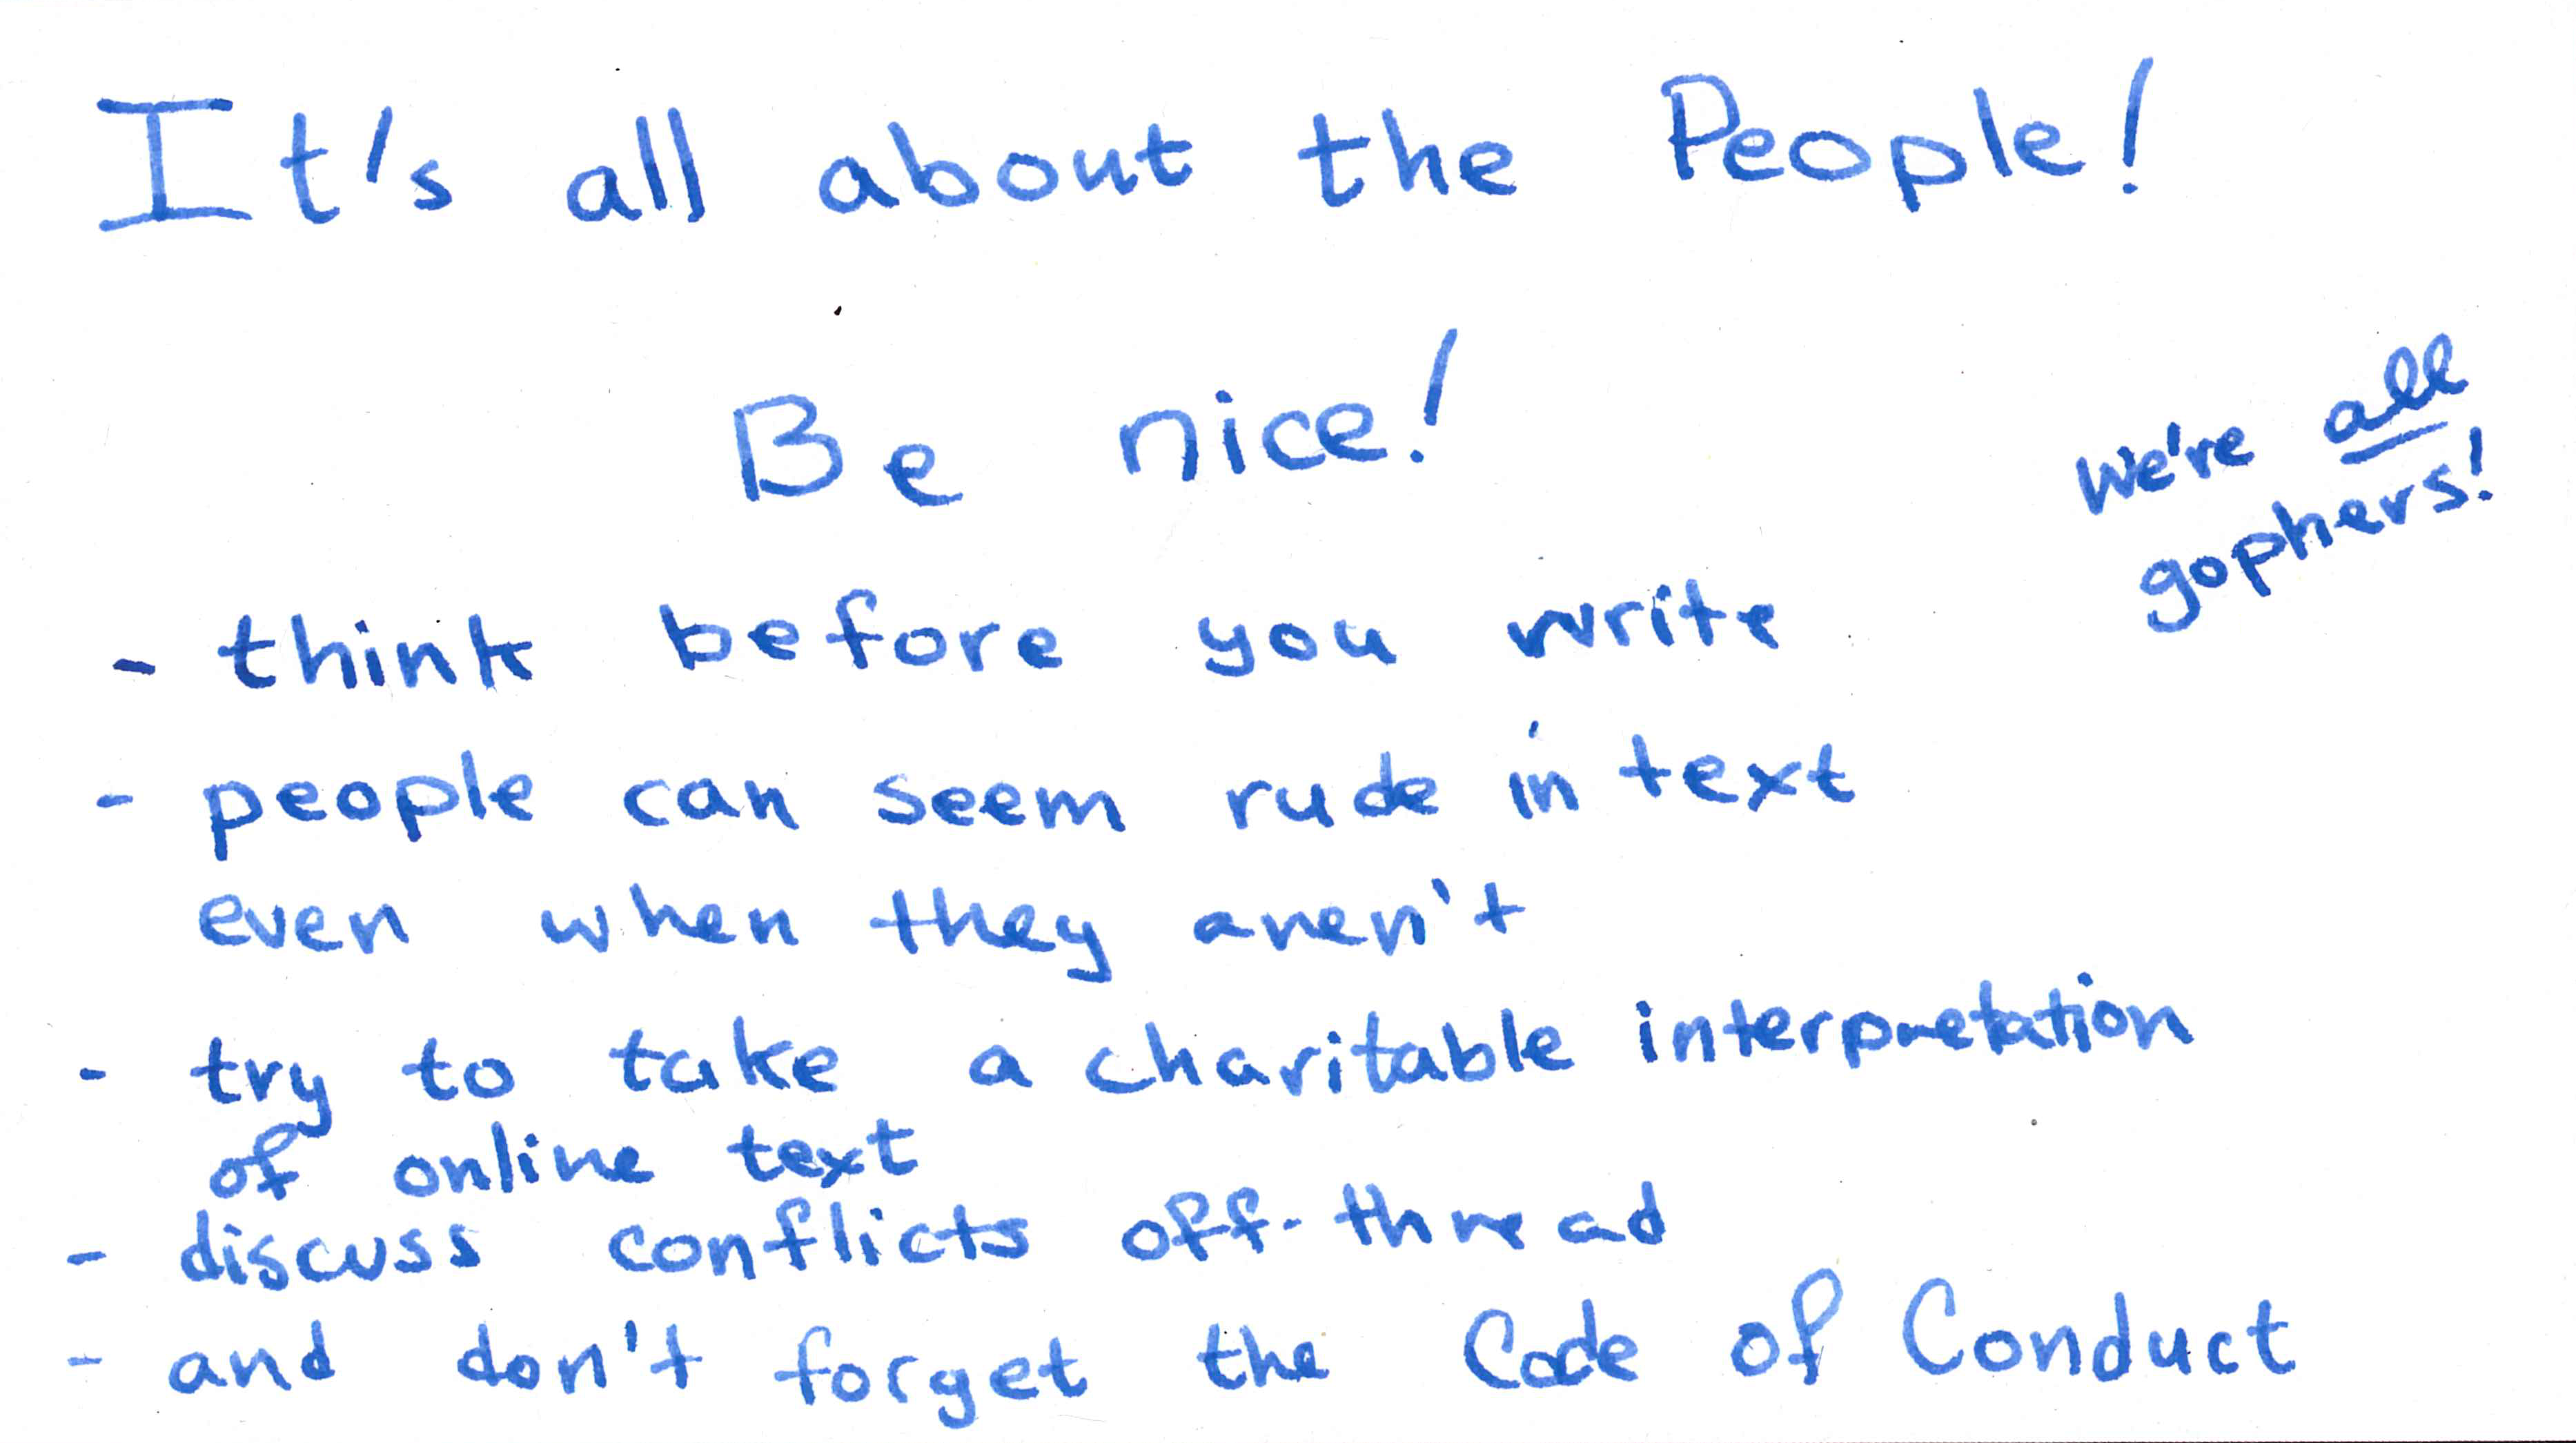 It's all about the People!
Be nice!
We're all
gophers!
- think before you write
- people can seem rude in text
even when they aren't
- try to take a charitable interpretation
of online text
- discuss conflicts off-thread
- and don't forget the Code of Conduct